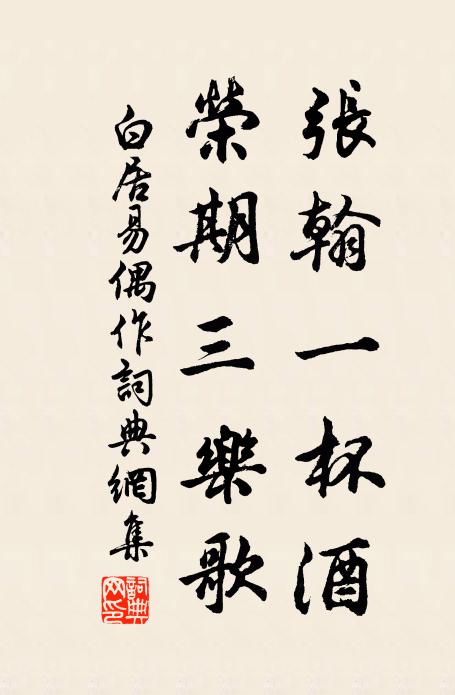 張翰一杯酒
榮期三樂歌
白居易偶作詞典網集
詞典網印